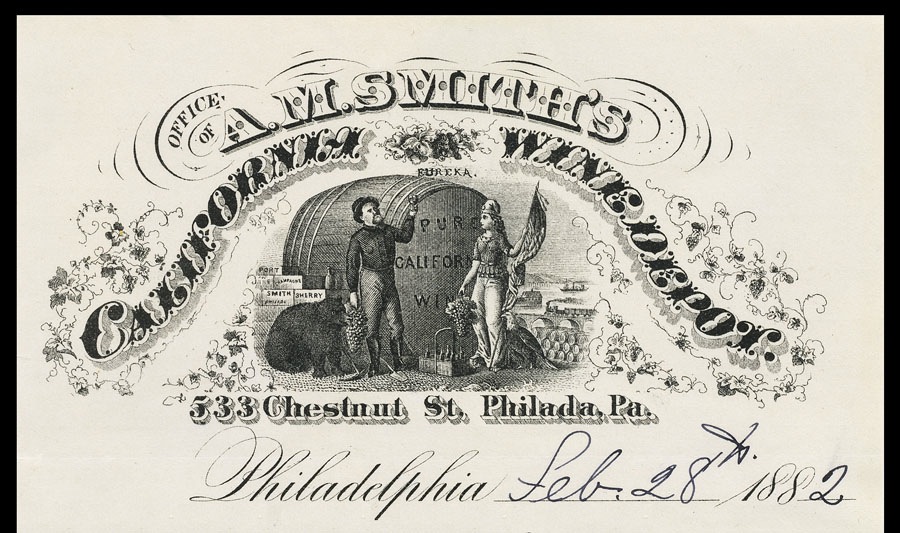 OFFICE OF
A.M. SMITH'S
CALIFORNIA WINE DEPOT.
EUREKA.
PURE
CALIFORN
WI
PORT
CHAMPAGNE
SMITH
SHERRY
533 Chestnut St. Philada, Pa.
Philadelphia Feb. 28th. 1882